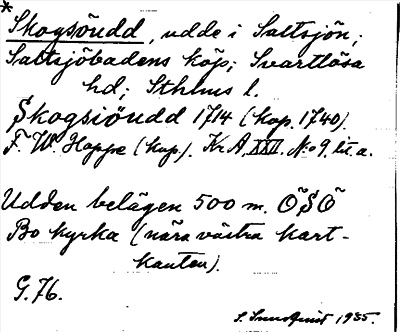 *
Skogsöudd, udde i Saltsjön;
Saltsjöbadens köp; Svartlösa
hd; Sthlms l.
Skogsiöudd 1714 (kop. 1740).
F. W. Hoppe (kop.). Kr A, XXI. No 9. lit. a.
Udden belägen 500 m. ÖSÖ
Bo kyrka (nära västra kart-
kanten).
G. 76.
S. 1935.